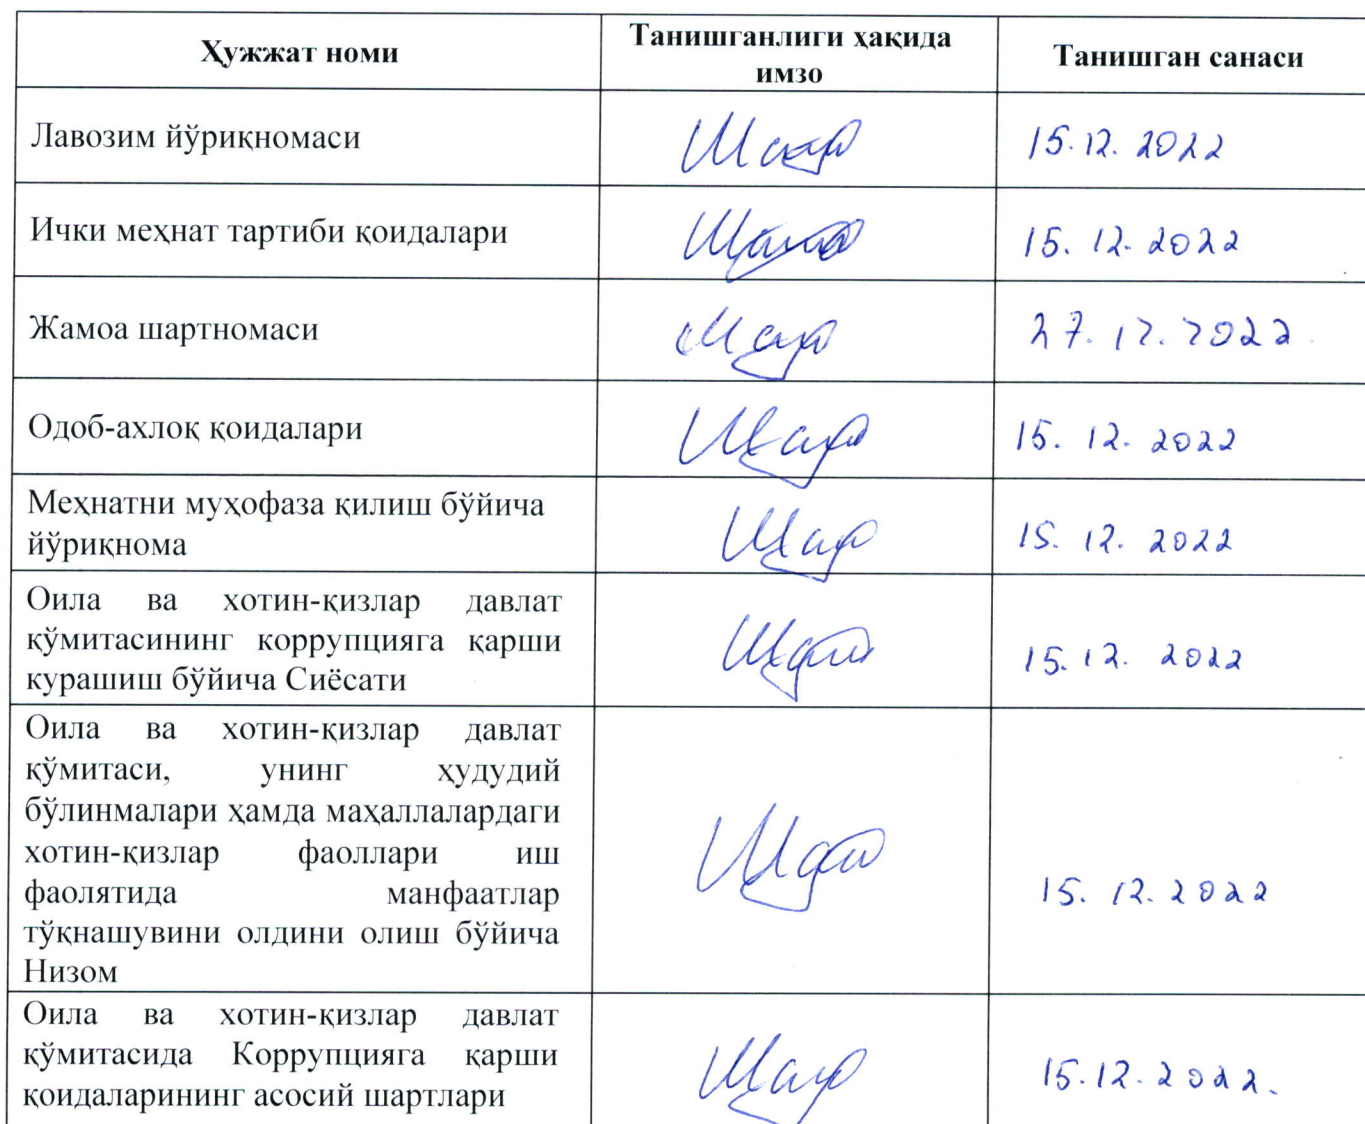 Ҳужжат номи
Танишганлиги ҳақида
имзо
Танишган санаси
Лавозим йўриқномаси
15.12.2022
Ички меҳнат тартиби қоидалари
15.12.2022
Жамоа шартномаси
27.12.2022
Одоб-ахлоқ қоидалари
15.12.2022
Меҳнатни муҳофаза қилиш бўйича
йўриқнома
15.12.2022
Оила ва хотин-қизлар давлат
қўмитасининг коррупцияга қарши
курашиш бўйича Сиёсати
15.12.2022
Оила ва хотин-қизлар давлат
қўмитаси, унинг ҳудудий
бўлинмалари ҳамда маҳаллалардаги
хотин-қизлар фаоллари иш
фаолятида манфаатлар
тўқнашувини олдини олиш бўйича
Низом
15.12.2022
Оила ва хотин-қизлар давлат
қўмитасида Коррупцияга қарши
қоидаларининг асосий шартлари
15.12.2022.